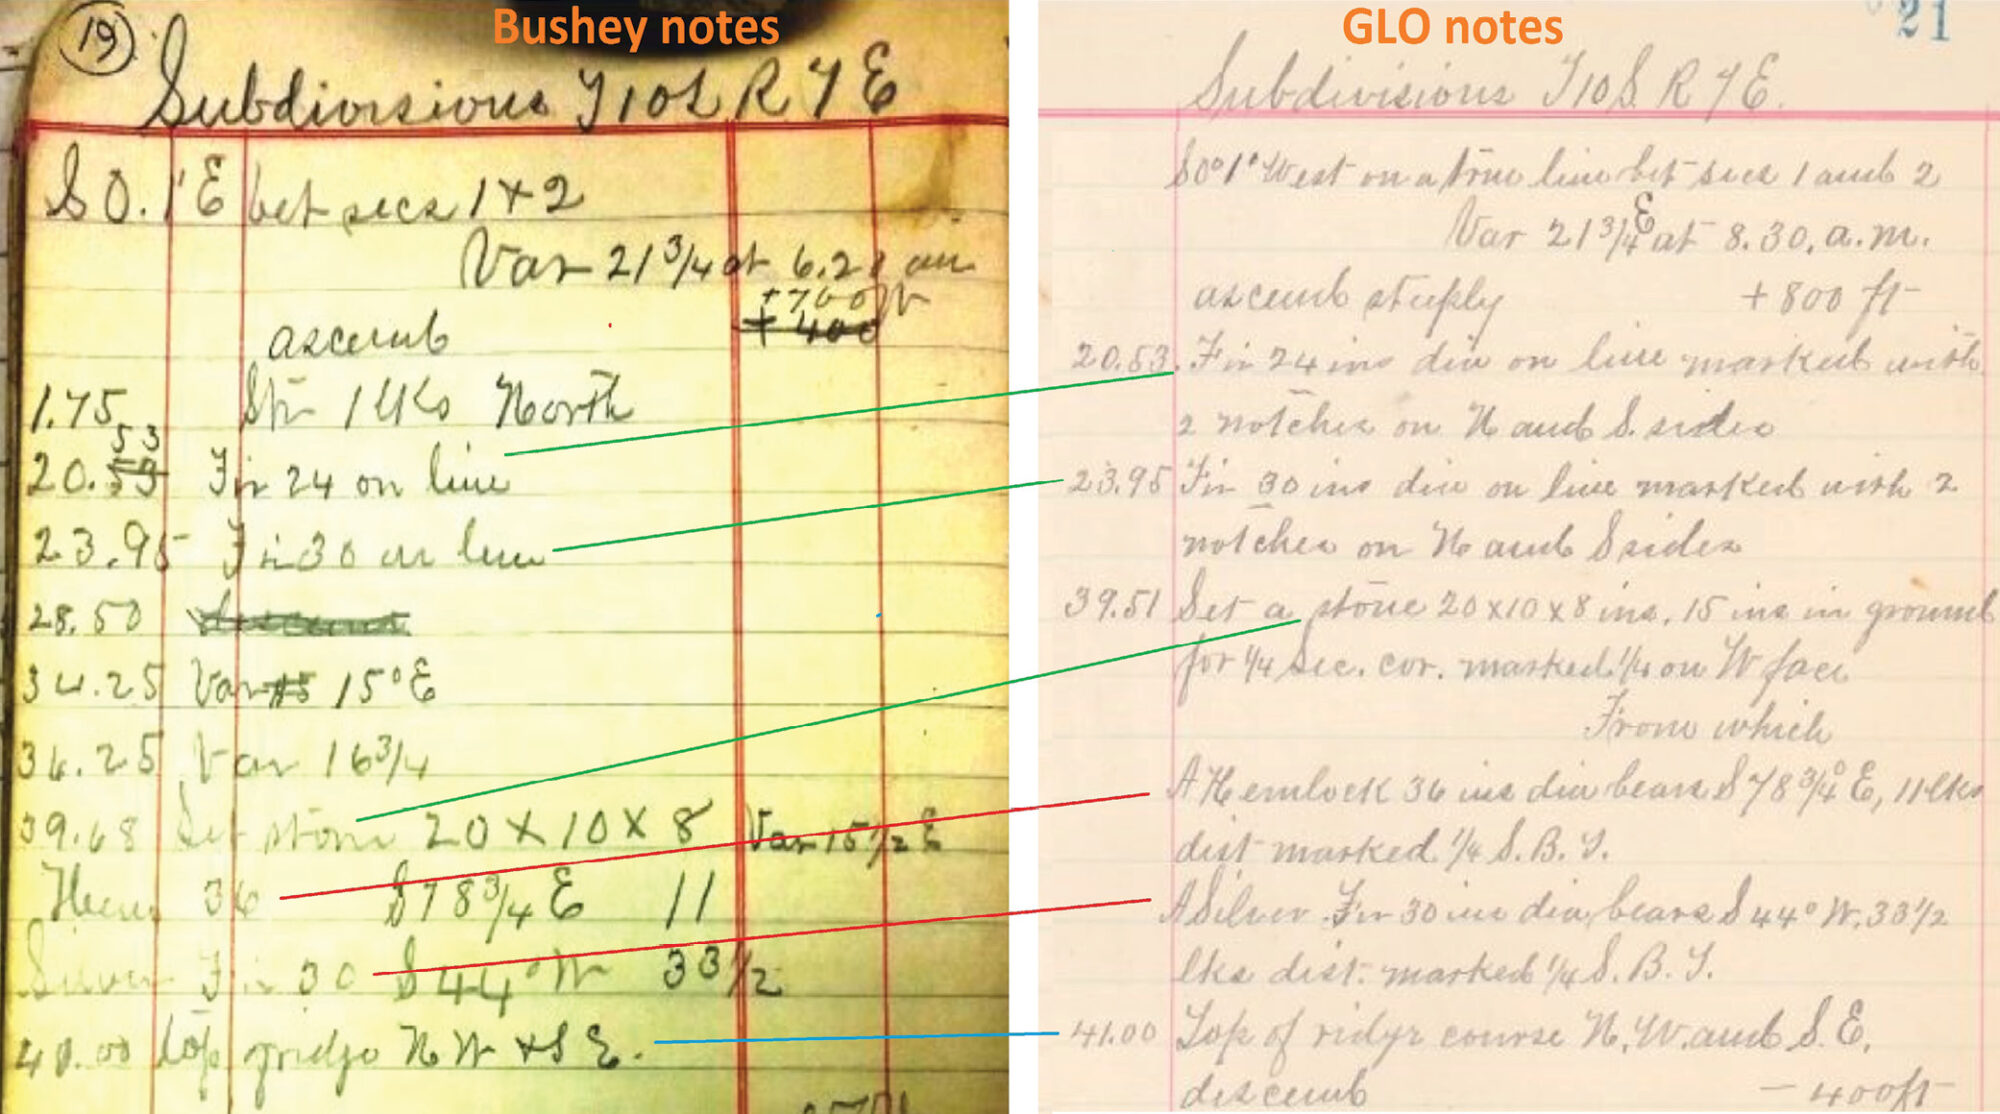 Bushey notes
19
Subdivisions T10S R 7 E
S 0.1' E bet secs 1 + 2
Var 21 3/4 at 6.2
+ 700 ft
+ 400
ascend
1.75 Str 1 lks North
53
20. Fir 24 on line
23.95 Fir 30 on line
28.50
34.25 Var 15° E
36.25 Var 16 3/4
39.68 Set stone 20 × 10 × 8 Var 15 1/2 E
Hem 36 S 78 3/4 E 11
Silver Fir 30 S 44° W 33 1/2
41.00 top ridge N W + S E.
GLO notes
21
Subdivisions T10S. R 7 E.
S0°1' West on a true line bet secs 1 and 2
Var 21 3/4 E at 8.30. a.m.
ascend steeply + 800 ft
20.53. Fir 24 ins dia on line marked with
2 notches on N and S. sides
23.95 Fir 30 ins dia on line marked with 2
notches on N and S sides
39.51 Set a stone 20 x 10 x 8 ins, 15 ins in ground
for 1/4 Sec. cor. marked 1/4 on W face
From which
A Hemlock 36 ins dia bears S 78 3/4° E, 11 lks
dist marked 1/4 S. B. T.
A Silver Fir 30 ins dia, bears S 44° W. 33 1/2
lks dist. marked 1/4 S. B. T.
41.00 Top of ridge course N. W. and S. E.
descend — 400 ft